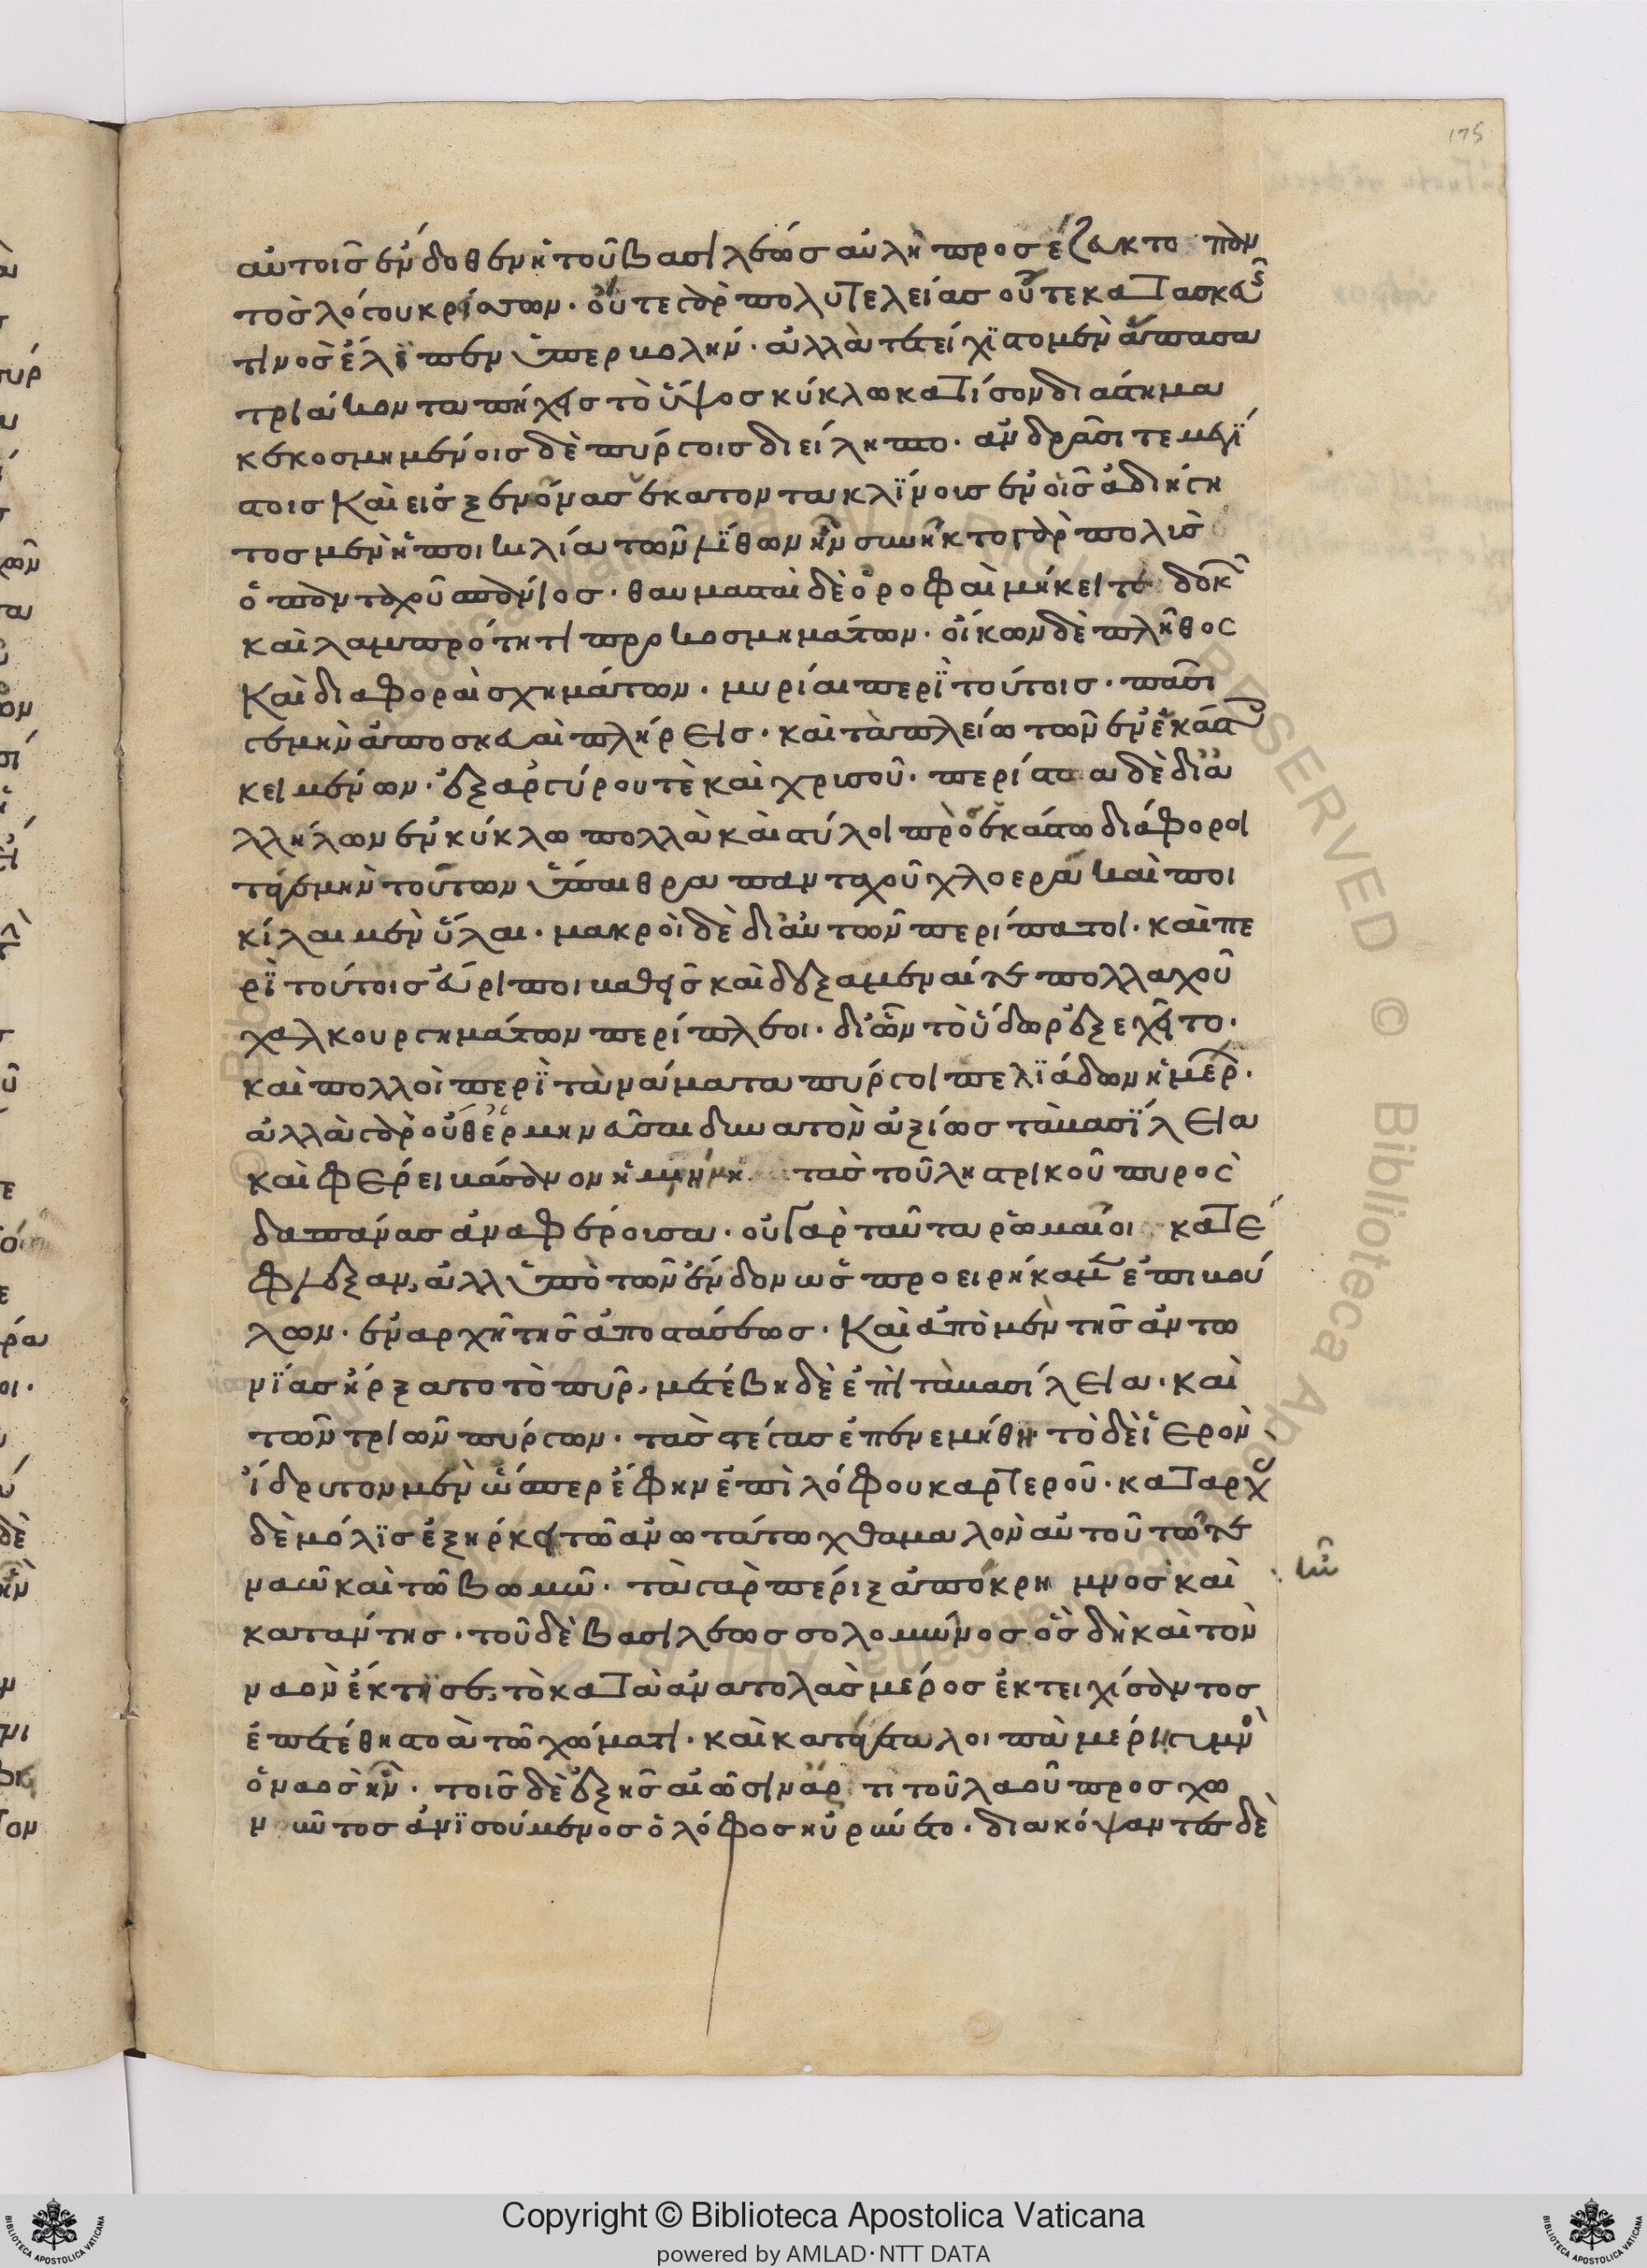 175
αὐτοῖς ἔνδοθεν ἡ τοῦ βασιλέως αὐλὴ προσέζευκτο παν
τὸς λόγου κρίσσων · οὔτε γὰρ πολυτελείας οὔτε κατασκευῆς
τινος ἔλειπεν ὑπερβολὴν · ἀλλὰ τετείχιστο μὲν ἅπασα
τριάκοντα πήχεις τὸ ὕψος κύκλω κατ ἴσον διάστημα
κεκοσμημένοις δὲ πύργοις διείληπτο · ἀνδρῶσι τε μεγί
στοις καὶ εἰς ξενῶνας ἑκατοντακλίνοις ἐν οἷς ἀδιήγη
τος μὲν ἡ ποικιλία τῶν λίθων ἦν συνῆκτο γὰρ πολὺς
ὁ πανταχοῦ σπάνιος · θαυμασταὶ δὲ ὀροφαὶ μήκει τε δοκῶν
καὶ λαμπρότητι προκοσμημάτων · οἴκων δὲ πλῆθος
καὶ διαφοραὶ σχημάτων · μυρίαι περὶ τούτοις · πᾶσι
γε μὴν ἀποσκευαὶ πλήρεις · καὶ τὰ πλείω τῶν ἐν ἑκάστῳ
κειμένων · ἐξ ἀργύρου τὲ καὶ χρυσοῦ · περίστοα δὲ δι ἀ
λλήλων ἐν κύκλω πολλὰ καὶ στύλοι πρὸς ἑκάστω διάφοροι
τά γε μὴν τούτων ὕπαιθρα πανταχοῦ χλοερά καὶ ποι
κίλαι μὲν ὗλαι · μακροὶ δὲ δι αὐτῶν περίπατοι · καὶ πε
ρὶ τούτοις εὔριποι βαθεῖς καὶ δεξαμεναί τε πολλαχοῦ
χαλκουργημάτων περίπλεοι · δι ὧν τὸ ὕδωρ ἐξεχεῖτο ·
καὶ πολλοὶ περὶ τὰ νάματα πύργοι πελιάδων ἡμέρων ·
ἀλλὰ γὰρ οὔθ ἑρμηνεῦσαι δυνατὸν ἀξίως τὰ βασίλεια
καὶ φέρει βάσανον ἡ μνήμη τὰς τοῦ ληστρικοῦ πυρὸς
δαπάνας ἀναφέρουσα · οὐ γὰρ ταῦτα ῥωμαῖοι κατέ
φλεξαν, ἀλλ ὑπὸ τῶν ἔνδον ὡς προειρήκαμεν ἐπιβού
λων · ἐν ἀρχῇ τῆς ἀποστάσεως · καὶ ἀπὸ μὲν τῆς ἀντω
νίας ἤρξατο τὸ πῦρ, μετέβη δὲ ἐπὶ τὰ βασίλεια · καὶ
τῶν τριῶν πύργων · τὰς στέγας ἐπενεμήθη τὸ δὲ ἱερὸν
ἵδρυτο μὲν ὥσπερ ἔφην ἐπὶ λόφου καρτεροῦ · κατ ἀρχὰς
δὲ μόλις ἐξήρκει τῶ ἀνωτάτω χθαμαλὸν αὐτοῦ τῶ τε
ναῶ καὶ τῶ βωμῶ · τὰ γὰρ πέριξ ἀπόκρημνος καὶ
κατάντης · τοῦ δὲ βασιλέως σολομῶνος ὃς δὴ καὶ τὸν
ναὸν ἔκτισε, τὸ κατ ἀνατολὰς μέρος ἐκτειχίσαντος
ἐπετέθη στοὰ τῶ χώματι · καὶ κατά γε τὰ λοιπὰ μέρη γυμνὸς
ὁ ναὸς ἦν · τοῖς δὲ ἐξῆς αἰῶσιν ἀεί τι τοῦ λαοῦ προσχω
ννύντος ἀνισούμενος ὁ λόφος ηὐρύνετο · διακόψαντες δὲ